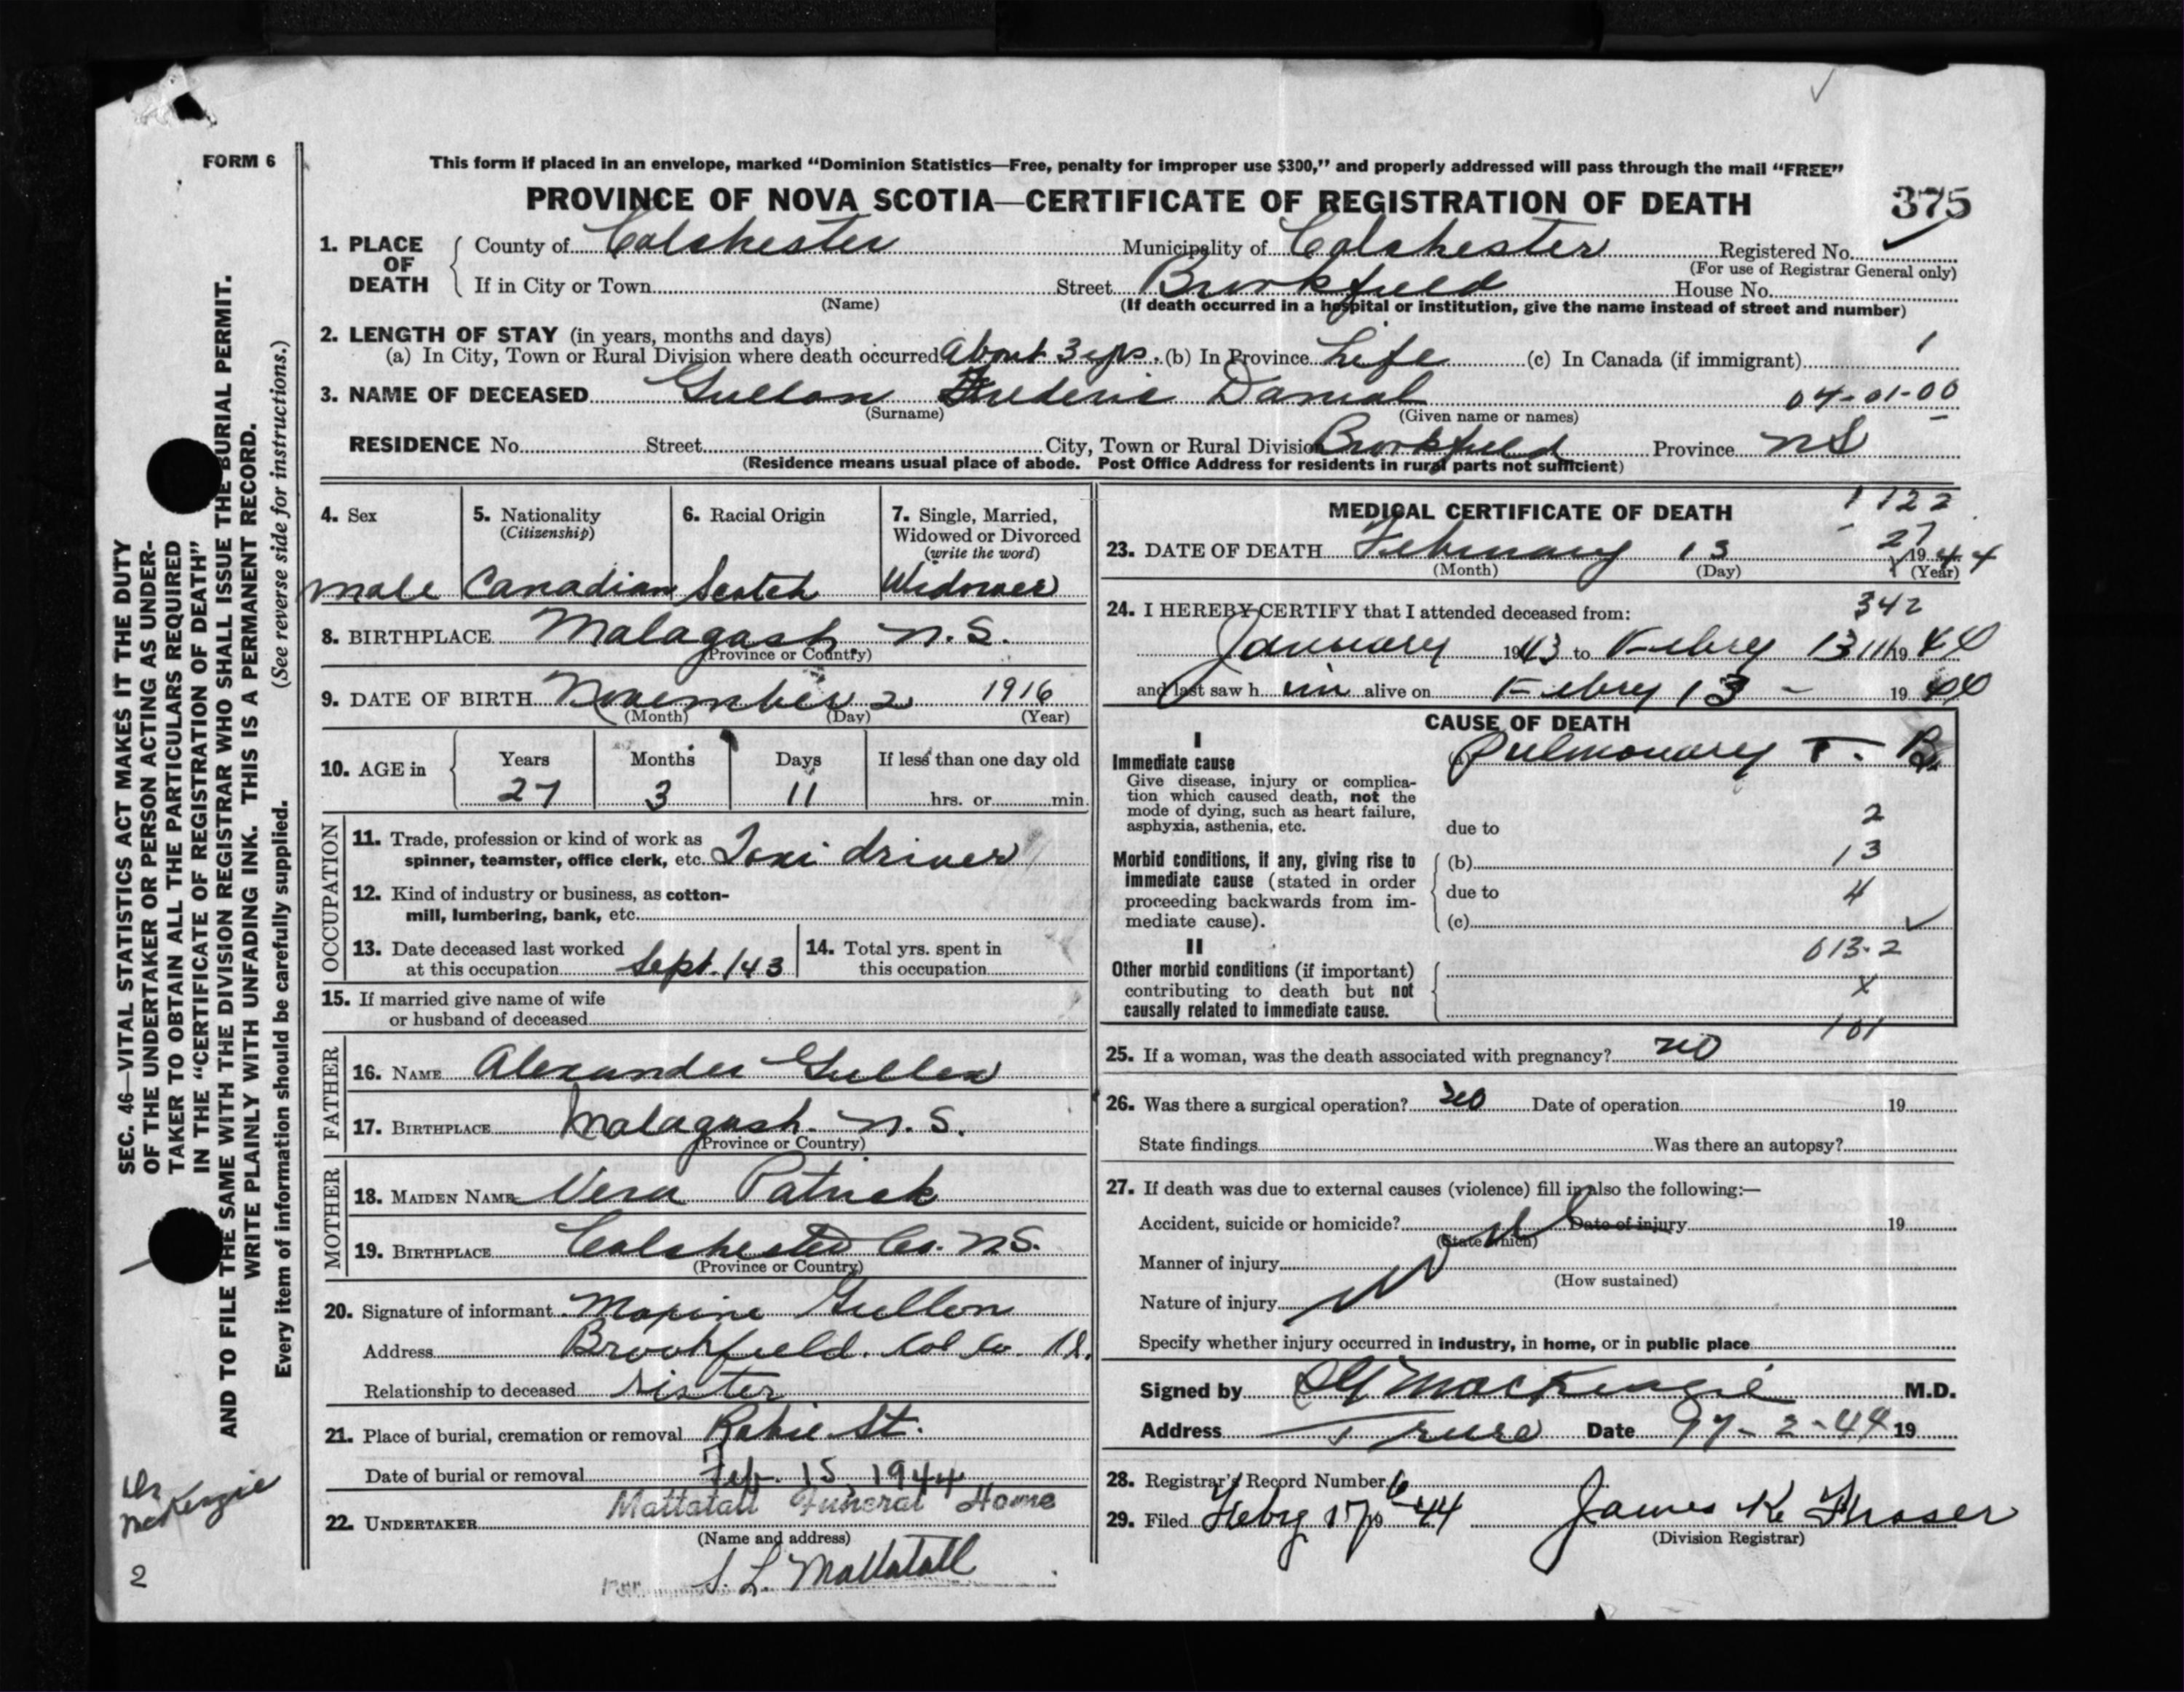 FORM 6
This form if placed in an envelope, marked “Dominion Statistics—Free, penalty for improper use $300,” and properly addressed will pass through the mail “FREE”
PROVINCE OF NOVA SCOTIA—CERTIFICATE OF REGISTRATION OF DEATH 375
1. PLACE OF DEATH County of Colchester Municipality of Colchester Registered No.
(For use of Registrar General only)
If in City or Town Street Brookfield House No.
(Name) (If death occurred in a hospital or institution, give the name instead of street and number)
2. LENGTH OF STAY (in years, months and days)
(a) In City, Town or Rural Division where death occurred About 3 yrs. (b) In Province Life (c) In Canada (if immigrant) 1
3. NAME OF DECEASED Gullon Frederic Danial 04-01-00
(Surname) (Given name or names)
RESIDENCE No. Street City, Town or Rural Division Brookfield Province NS
(Residence means usual place of abode. Post Office Address for residents in rural parts not sufficient)
4. Sex 5. Nationality (Citizenship) 6. Racial Origin 7. Single, Married, Widowed or Divorced (write the word)
male Canadian Scotch Widower
8. BIRTHPLACE Malagash N.S.
(Province or Country)
9. DATE OF BIRTH November 2 1916
(Month) (Day) (Year)
10. AGE in Years Months Days If less than one day old
27 3 11 hrs. or min.
OCCUPATION
11. Trade, profession or kind of work as
spinner, teamster, office clerk, etc. Taxi driver
12. Kind of industry or business, as cotton-
mill, lumbering, bank, etc.
13. Date deceased last worked
at this occupation Sept. 143
14. Total yrs. spent in
this occupation
15. If married give name of wife
or husband of deceased
FATHER
16. NAME Alexander Gullon
17. BIRTHPLACE Malagash. N.S.
(Province or Country)
MOTHER
18. MAIDEN NAME Vera Patrick
19. BIRTHPLACE Colchester Co. N.S.
(Province or Country)
20. Signature of informant Maxine Gullon
Address Brookfield. Col Co. N.S.
Relationship to deceased sister
21. Place of burial, cremation or removal Robie St.
Date of burial or removal Feb. 15 1944
22. UNDERTAKER Mattatall Funeral Home
(Name and address)
Per S. L. Mattatall
MEDICAL CERTIFICATE OF DEATH 1122
27
23. DATE OF DEATH February 13 1944
(Month) (Day) (Year)
24. I HEREBY CERTIFY that I attended deceased from: 342
January 1943 to Febry 13 1944
and last saw h im alive on Febry 13 - 1944
CAUSE OF DEATH
I
Immediate cause (a) Pulmonary T. B.
Give disease, injury or complica-
tion which caused death, not the
mode of dying, such as heart failure,
asphyxia, asthenia, etc. due to 2
Morbid conditions, if any, giving rise to (b) 13
immediate cause (stated in order
proceeding backwards from im- due to 4
mediate cause). (c)
II 013-2
Other morbid conditions (if important)
contributing to death but not X
causally related to immediate cause.
101
25. If a woman, was the death associated with pregnancy? no
26. Was there a surgical operation? no Date of operation 19
State findings Was there an autopsy?
27. If death was due to external causes (violence) fill in also the following:—
Accident, suicide or homicide? Date of injury 19
(State which)
Manner of injury
(How sustained)
Nature of injury
Specify whether injury occurred in industry, in home, or in public place
Signed by MacKenzie M.D.
Address Truro Date 17-2-44 19
28. Registrar's Record Number 6
29. Filed Febry 17 19 44 James K. Fraser
(Division Registrar)
SEC. 46—VITAL STATISTICS ACT MAKES IT THE DUTY
OF THE UNDERTAKER OR PERSON ACTING AS UNDER-
TAKER TO OBTAIN ALL THE PARTICULARS REQUIRED
IN THE “CERTIFICATE OF REGISTRATION OF DEATH”
AND TO FILE THE SAME WITH THE DIVISION REGISTRAR WHO SHALL ISSUE THE BURIAL PERMIT.
WRITE PLAINLY WITH UNFADING INK. THIS IS A PERMANENT RECORD.
Every item of information should be carefully supplied. (See reverse side for instructions.)
Dr
McKenzie
2